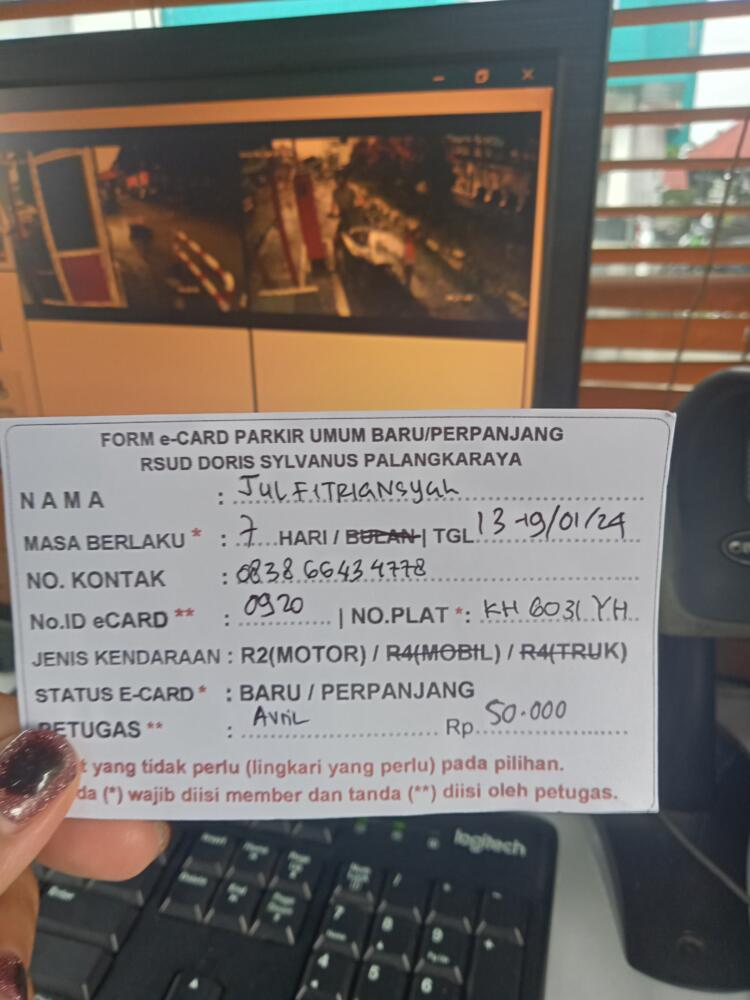 FORM e-CARD PARKIR UMUM BARU/PERPANJANG
RSUD DORIS SYLVANUS PALANGKARAYA
NAMA : JULFITRIANSYah
MASA BERLAKU * : 7 HARI / BULAN | TGL 13-19/01/24
NO. KONTAK : 0838 6643 4778
No.ID eCARD ** : 0920 | NO.PLAT *: KH 6031 YH
JENIS KENDARAAN : R2(MOTOR) / R4(MOBIL) / R4(TRUK)
STATUS E-CARD * : BARU / PERPANJANG
PETUGAS ** : AvriL Rp 50.000
t yang tidak perlu (lingkari yang perlu) pada pilihan.
da (*) wajib diisi member dan tanda (**) diisi oleh petugas.
logitech
Enter
7 8 9 +
4 5 6